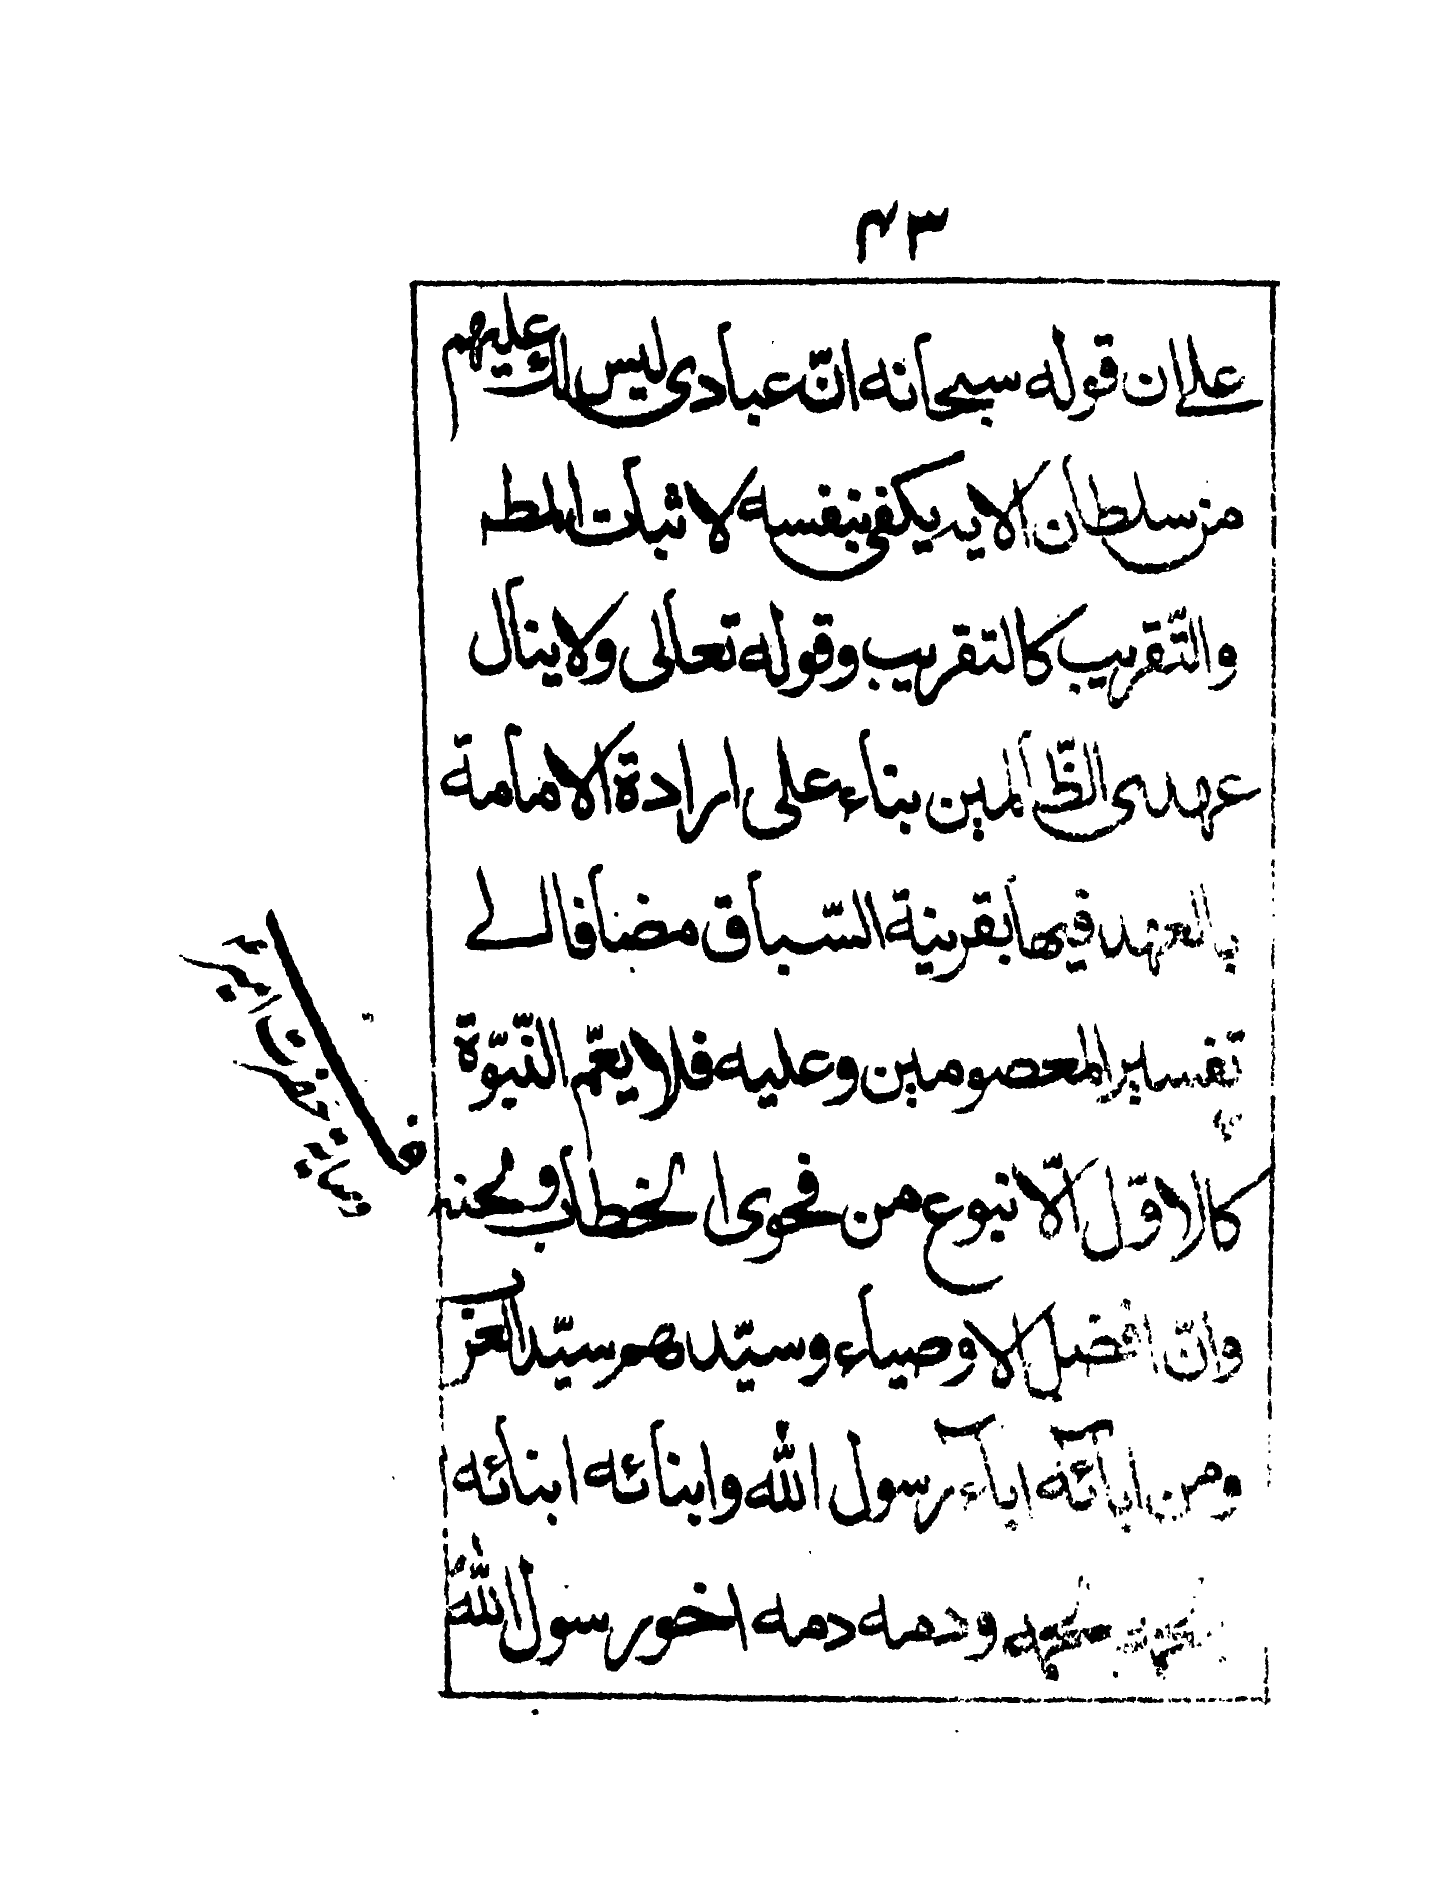 ۴۳
على ان قوله سبحانه انّ عبادى ليس لك عليهم
من سلطان الايه يكفى بنفسه لاثبات المط
والتّقريب كالتقريب وقوله تعالى ولا ينال
عهدى الظّالمين بناء على ارادة الامامة
بالعهد فيها بقرينة السّباق مضافا الے
تفسير المعصومين وعليه فلا يعمّ النّبوّة
كالاوّل الّا نبوع من فحوى الخطاب ولحنه
وانّ افضل الاوصياء وسيّدهم سيّد العرب
ومن ابائه اباء رسول الله وابنائه ابنائه
ودمه دمه اخو رسول الله